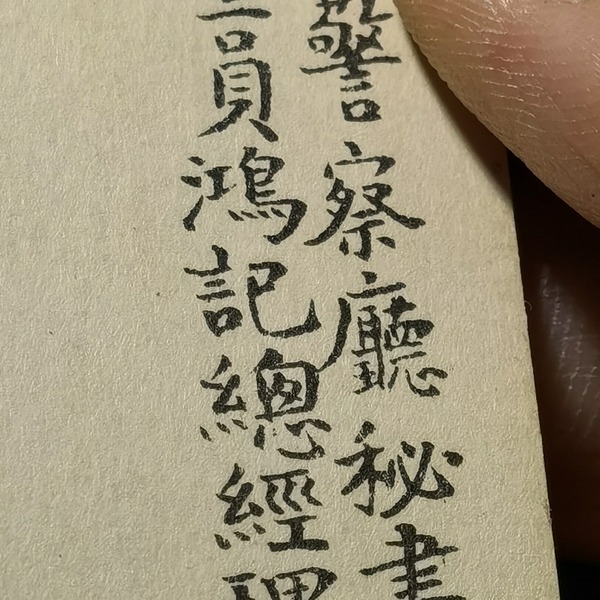 警察廳秘書
員鴻記總經理